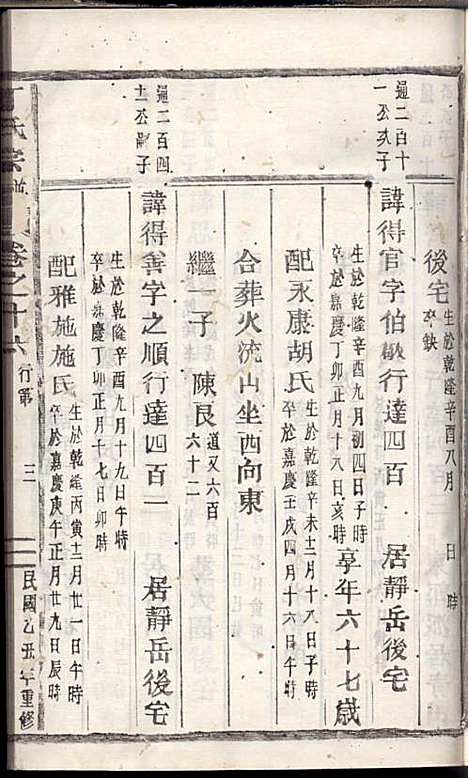 後宅
生於乾隆辛酉八月 日 時
卒缺
通二百十
一公次子
諱得官字伯敏行達四百 居靜岳後宅
生於乾隆辛酉九月初四日子時
卒於嘉慶丁卯正月十八日亥時
享年六十七歲
配永康胡氏
生於乾隆辛未十二月十八日子時
卒於嘉慶壬戌四月十六日亥時
合葬火流山坐西向東
繼一子 陳良
道又六百
六十二
通二百四
十二公嗣子
諱得善字之順行達四百二 居靜岳後宅
生於乾隆辛酉九月十九日午時
卒於嘉慶丁卯正月十七日卯時
配雅施施氏
生於乾隆丙寅十二月廿一日午時
卒於嘉慶庚午正月廿九日辰時
丁氏宗譜 卷之十六 行第 三 民國乙丑年重修